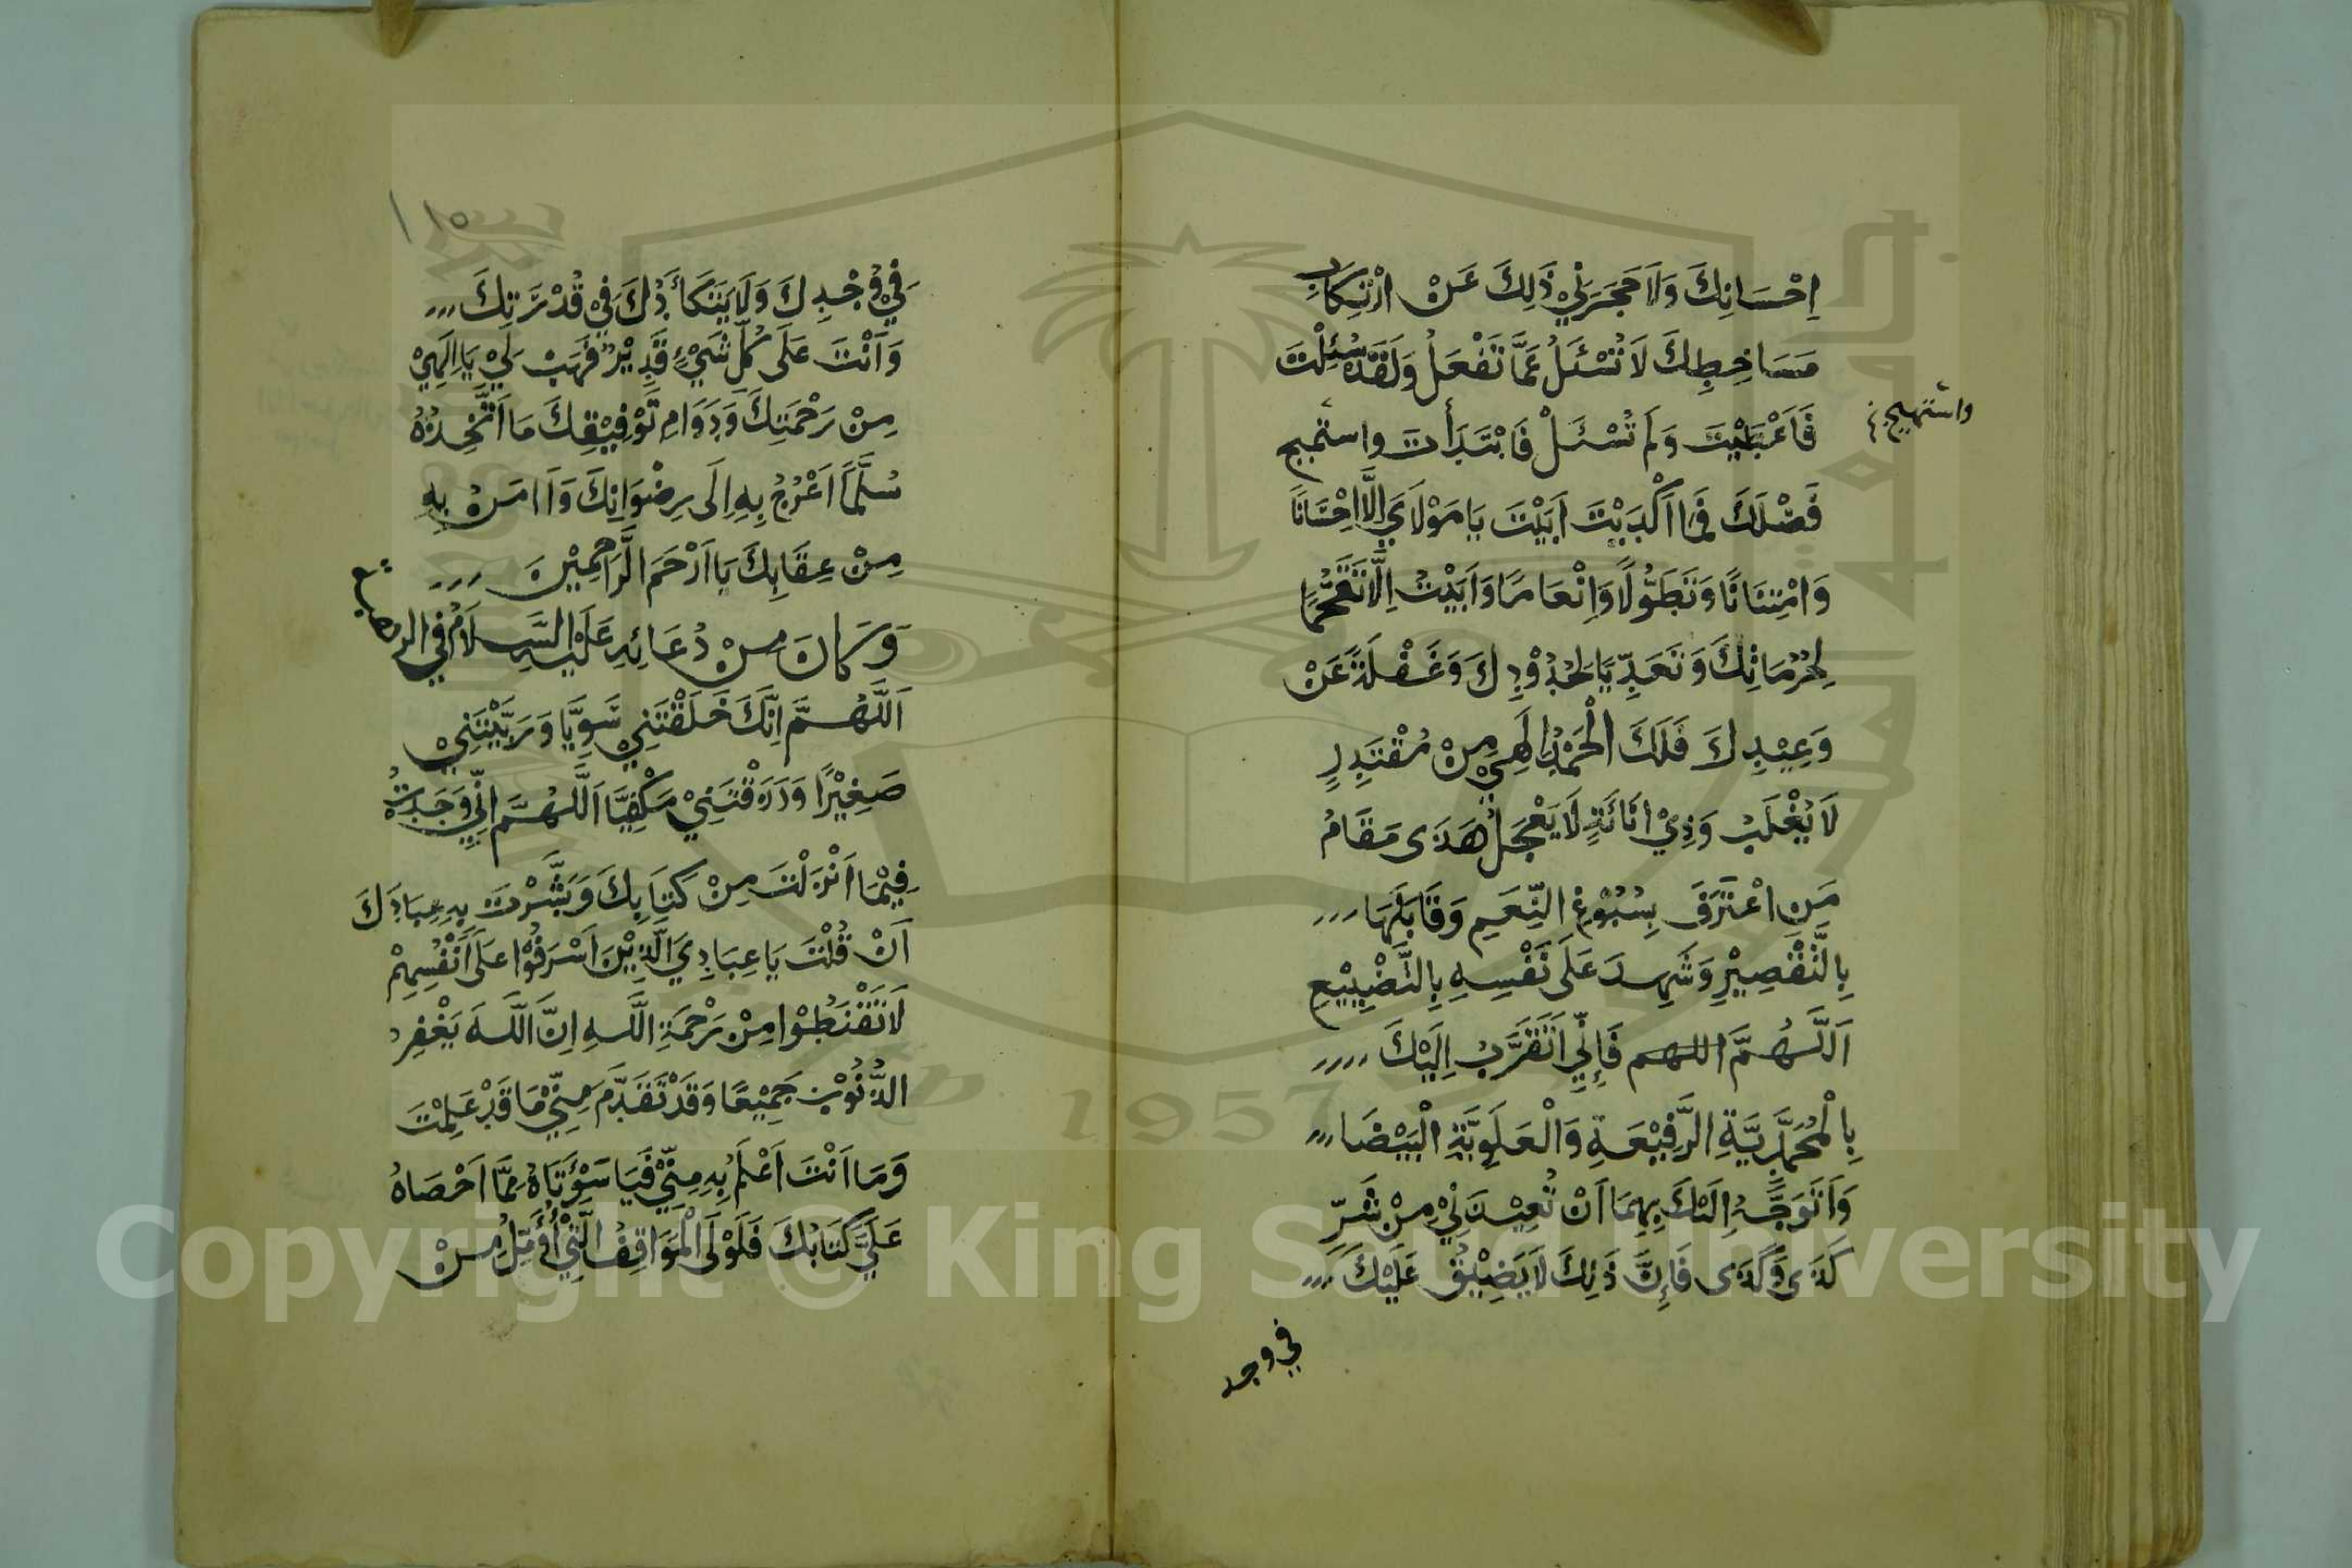 اِحْسَانِكَ وَلَا حَجَرَنِيْ ذٰلِكَ عَنْ ارْتِكَابِ
مَسَاخِطِكَ لَا تُسْئَلُ عَمَّا تَفْعَلُ وَلَقَدْ سُئِلْتَ
فَاَعْطَيْتَ وَلَمْ تُسْئَلْ فَابْتَدَأْتَ واستميح
واستهيج
فَضْلَكَ فَمَا اَكْدَيْتَ اَبَيْتَ يَا مَوْلَايَ اِلَّا اِحْسَانًا
وَامْتِنَانًا وَتَطَوُّلًا وَاِنْعَامًا وَاَبَيْتُ اِلَّا تَقَحُّمًا
لِحُرُمَاتِكَ وَتَعَدِّيًا لِحُدُوْدِكَ وَغَفْلَةً عَنْ
وَعِيْدِكَ فَلَكَ الْحَمْدُ اِلٰهِيْ مِنْ مُقْتَدِرٍ
لَا يُغْلَبُ وَذِيْ اَنَائَةٍ لَا يَعْجَلُ هَذَى مَقَامُ
مَنِ اعْتَرَفَ بِسُبُوْغِ النِّعَمِ وَقَابَلَهَا
بِالتَّقْصِيْرِ وَشَهِدَ عَلَى نَفْسِهِ بِالتَّضْيِيْعِ
اَللّٰهُمَّ اللهم فَاِنِّيْ اَتَقَرَّبُ اِلَيْكَ
بِالْمُحَمَّدِيَّةِ الرَّفِيْعَةِ وَالْعَلَوِيَّةِ الْبَيْضَا
وَاَتَوَجَّهُ اِلَيْكَ بِهِمَا اَنْ تُعِيْذَنِيْ مِنْ شَرِّ
كَذَى وَكَذَى فَاِنَّ ذٰلِكَ لَا يَضِيْقُ عَلَيْكَ
في وجد
١١٥
فِيْ وُجْدِكَ وَلَا يَتَكَأَّدُكَ فِيْ قُدْرَتِكَ
وَاَنْتَ عَلَى كُلِّ شَيْءٍ قَدِيْرٌ فَهَبْ لِيْ يَا اِلٰهِيْ
مِنْ رَحْمَتِكَ وَدَوَامِ تَوْفِيْقِكَ مَا اَتَّخِذُهُ
سُلَّمًا اَعْرُجُ بِهِ اِلَى رِضْوَانِكَ وَاٰمَنُ بِهِ
مِنْ عِقَابِكَ يَا اَرْحَمَ الرَّاحِمِيْنَ
وَكَانَ مِنْ دُعَائِهِ عَلَيْهِ السَّلَامُ فِي الرهبة
اَللّٰهُمَّ اِنَّكَ خَلَقْتَنِيْ سَوِيًّا وَرَبَّيْتَنِيْ
صَغِيْرًا وَرَزَقْتَنِيْ مَكْفِيًّا اَللّٰهُمَّ اِنِّيْ وَجَدْتُ
فِيْمَا اَنْزَلْتَ مِنْ كِتَابِكَ وَبَشَّرْتَ بِهِ عِبَادَكَ
اَنْ قُلْتَ يَا عِبَادِيَ الَّذِيْنَ اَسْرَفُوْا عَلَى اَنْفُسِهِمْ
لَا تَقْنَطُوْا مِنْ رَحْمَةِ اللّٰهِ اِنَّ اللّٰهَ يَغْفِرُ
الذُّنُوْبَ جَمِيْعًا وَقَدْ تَقَدَّمَ مِنِّيْ مَا قَدْ عَلِمْتَ
وَمَا اَنْتَ اَعْلَمُ بِهِ مِنِّيْ فَيَا سَوْئَتَاهُ مِمَّا اَحْصَاهُ
عَلَيَّ كِتَابُكَ فَلَوْلَى الْمَوَاقِفُ الَّتِيْ اُؤَمِّلُ مِنْ
Copyright © King Saud University
1957